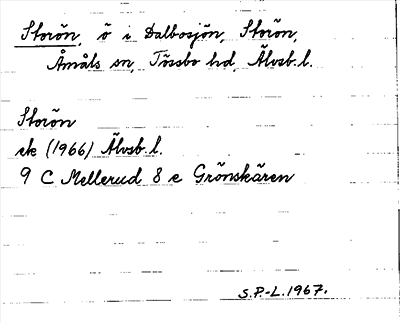 Storön, ö i Dalbosjön, Storön,
Åmåls sn, Tössbo hd, Älvsb. l.
Storön
ek (1966) Älvsb. l.
9 C Mellerud 8 e Grönskären
S.P.-L. 1967.